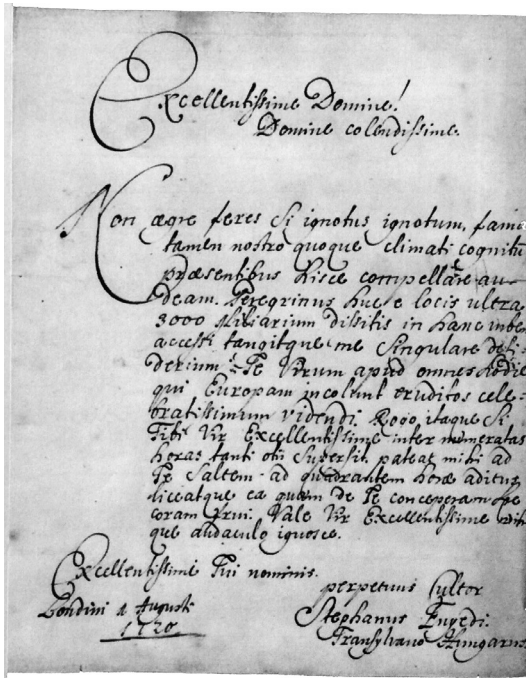 Excellentissime Domine!
Domine colendissime.
Non ægre feres si ignotus ignotum, fama
tamen nostro quoque climati cognitu
præsentibus hisce compellare au-
deam. Peregrinus huc e locis ultra
3000 Miliarium dissitis in hanc urbem
accessi tangitque me singulare desi-
derium Te Virum apud omnes hodie
qui Europam incolunt eruditos cele-
bratissimum videndi. Rogo itaque si
Tibi Vir Excellentissime inter numeratas
horas tanti otii supersit, pateat mihi ad
Te saltem ad quadrantem horæ aditus
liceatque ea quam de Te conceperam
coram frui. Vale Vir Excellentissime
que audaculo ignosce.
Excellentissime Tui nominis.
perpetuus Cultor
Londini 1 Augusti
Stephanus Enyedi.
1720
Transylvano Hungarus